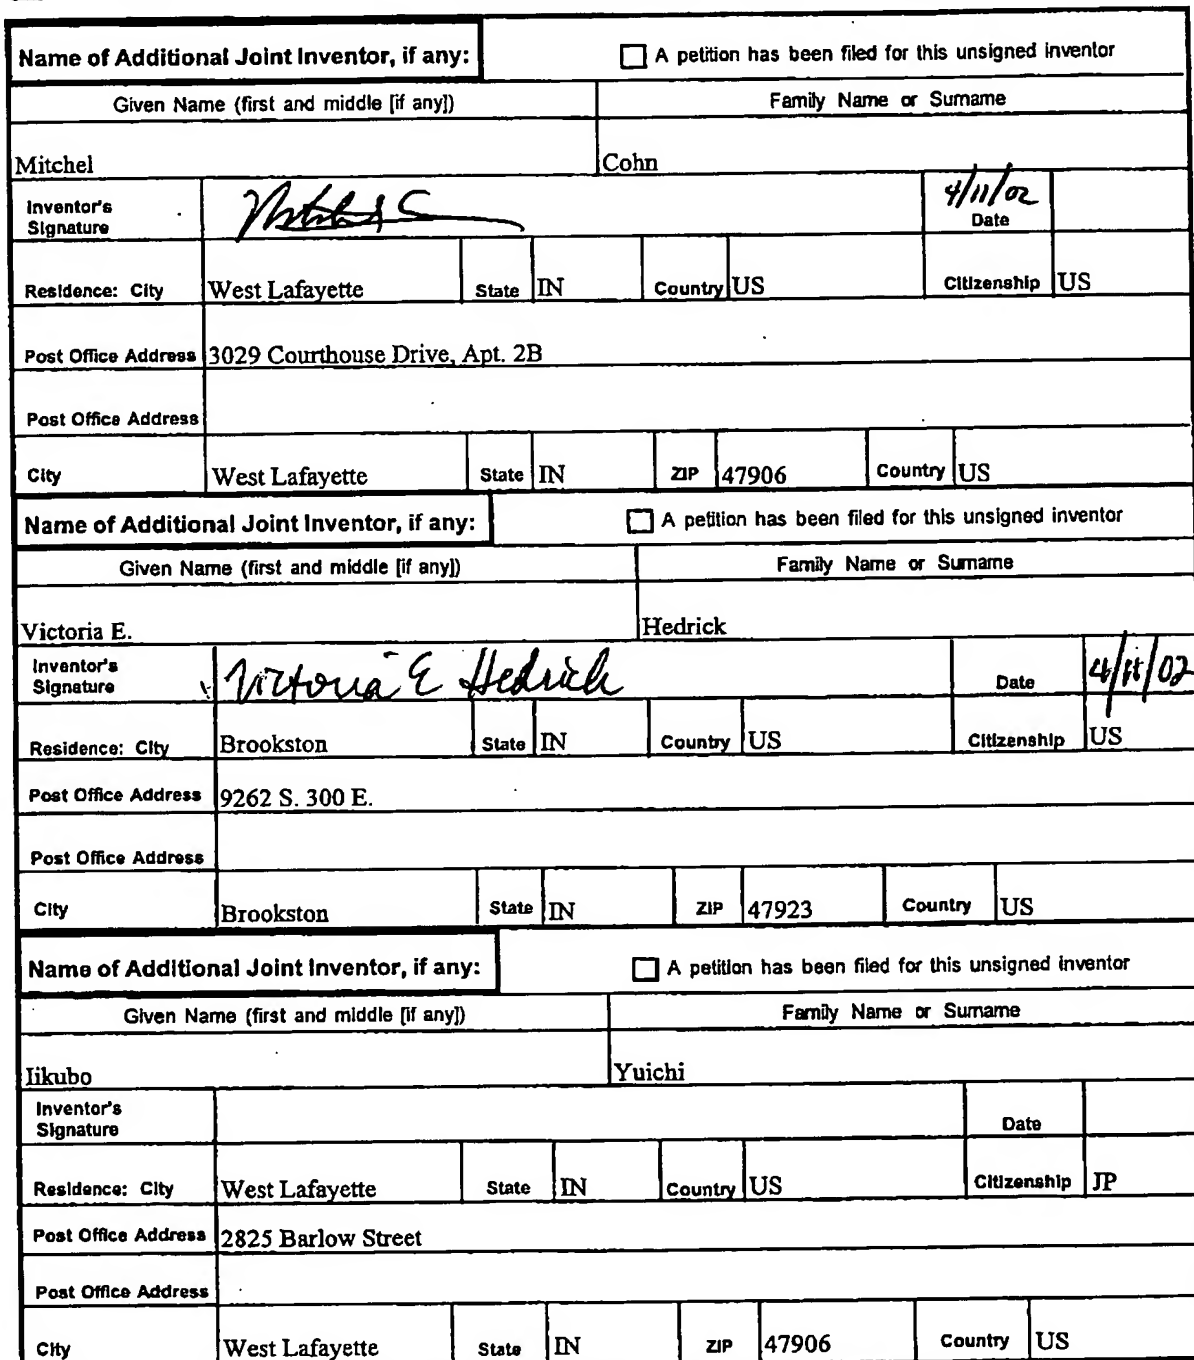 Name of Additional Joint Inventor, if any: A petition has been filed for this unsigned inventor
Given Name (first and middle [if any]) Family Name or Surname
Mitchel Cohn
Inventor's Signature 4/11/02 Date
Residence: City West Lafayette State IN Country US Citizenship US
Post Office Address 3029 Courthouse Drive, Apt. 2B
Post Office Address
City West Lafayette State IN ZIP 47906 Country US
Name of Additional Joint Inventor, if any: A petition has been filed for this unsigned inventor
Given Name (first and middle [if any]) Family Name or Surname
Victoria E. Hedrick
Inventor's Signature Victoria E Hedrick Date 4/11/02
Residence: City Brookston State IN Country US Citizenship US
Post Office Address 9262 S. 300 E.
Post Office Address
City Brookston State IN ZIP 47923 Country US
Name of Additional Joint Inventor, if any: A petition has been filed for this unsigned inventor
Given Name (first and middle [if any]) Family Name or Surname
Iikubo Yuichi
Inventor's Signature Date
Residence: City West Lafayette State IN Country US Citizenship JP
Post Office Address 2825 Barlow Street
Post Office Address
City West Lafayette State IN ZIP 47906 Country US